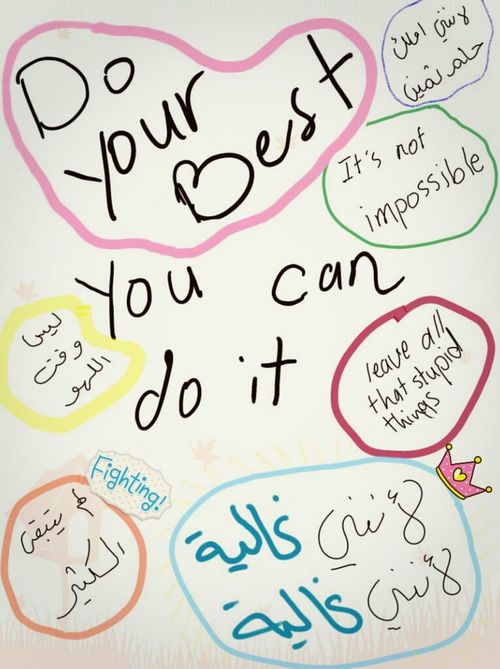 Do
your
Best
لأنني املك
حلم ثمين
It's not
impossible
You can
do it
ليس
وقت
اللهو
leave all
that stupid
things
Fighting!
لم يتبقى
الكثير
لأنني غالية
لأنني غالية